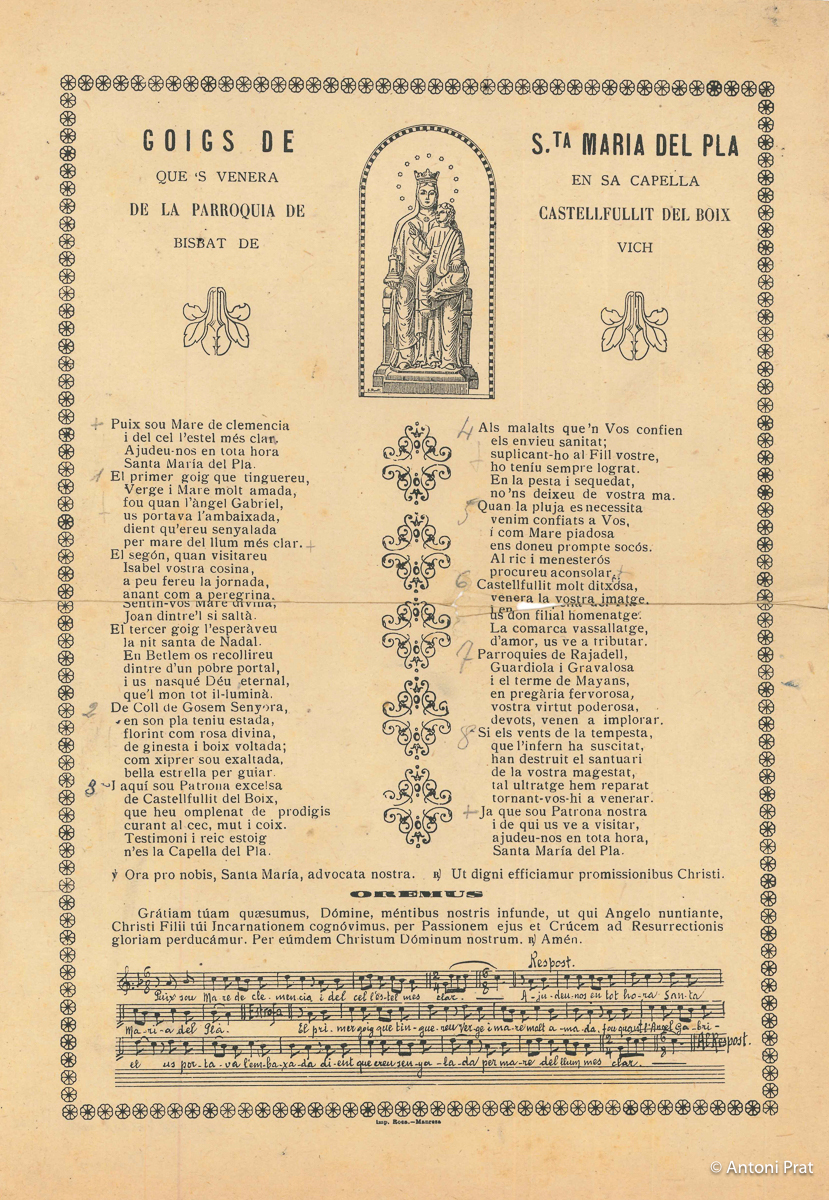 GOIGS DE S.TA MARIA DEL PLA
QUE 'S VENERA EN SA CAPELLA
DE LA PARROQUIA DE CASTELLFULLIT DEL BOIX
BISBAT DE VICH
+ Puix sou Mare de clemencia
i del cel l'estel més clar,
Ajudeu-nos en tota hora
Santa María del Pla.
1 El primer goig que tinguereu,
Verge i Mare molt amada,
fou quan l'àngel Gabriel,
us portava l'ambaixada,
dient qu'ereu senyalada
per mare del llum més clar. +
El segón, quan visitareu
Isabel vostra cosina,
a peu fereu la jornada,
anant com a peregrina.
Sentin-vos Mare divina,
Joan dintre'l si saltà.
El tercer goig l'esperàveu
la nit santa de Nadal.
En Betlem os recollireu
dintre d'un pobre portal,
i us nasqué Déu eternal,
que'l mon tot il-luminà.
2 De Coll de Gosem Senyora,
en son pla teniu estada,
florint com rosa divina,
de ginesta i boix voltada;
com xiprer sou exaltada,
bella estrella per guiar.
3 I aquí sou Patrona excelsa
de Castellfullit del Boix,
que heu omplenat de prodigis
curant al cec, mut i coix.
Testimoni i reic estoig
n'es la Capella del Pla.
4 Als malalts que'n Vos confien
els envieu sanitat;
suplicant-ho al Fill vostre,
ho teníu sempre lograt.
En la pesta i sequedat,
no'ns deixeu de vostra ma.
5 Quan la pluja es necessita
venim confiats a Vos,
i com Mare piadosa
ens doneu prompte socós.
Al ric i menesterós
procureu aconsolar.
6 Castellfullit molt ditxosa,
venera la vostra imatge.
us don filial homenatge.
La comarca vassallatge,
d'amor, us ve a tributar.
7 Parroquies de Rajadell,
Guardiola i Gravalosa
i el terme de Mayans,
en pregària fervorosa,
vostra virtut poderosa,
devots, venen a implorar.
8 Si els vents de la tempesta,
que l'infern ha suscitat,
han destruit el santuari
de la vostra magestat,
tal ultratge hem reparat
tornant-vos-hi a venerar.
+ Ja que sou Patrona nostra
i de qui us ve a visitar,
ajudeu-nos en tota hora,
Santa María del Pla.
℣ Ora pro nobis, Santa María, advocata nostra. ℟ Ut digni efficiamur promissionibus Christi.
OREMUS
Grátiam túam quæsumus, Dómine, méntibus nostris infunde, ut qui Angelo nuntiante,
Christi Filii túi Incarnationem cognóvimus, per Passionem ejus et Crúcem ad Resurrectionis
gloriam perducámur. Per eúmdem Christum Dóminum nostrum. ℟ Amén.
Respost.
Puix sou Ma-re de cle-men-cia i del cel l'es-tel mes clar. A-ju-deu-nos en tot ho-ra San-ta
Ma-ri-a del Pla. Estrofa El pri-mer goig que tin-gue-reu Ver-ge i ma-re molt a-ma-da, fou quant l'Angel Ga-bri-
el us por-ta-va l'em-ba-xa-da di-ent que creu sen-ya-la-da per ma-re del llum mes clar. Al Respost.
Imp. Roca.—Manresa
© Antoni Prat